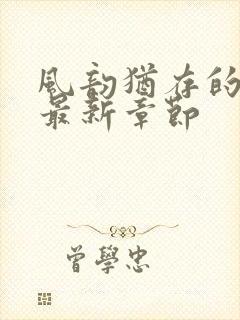 風韵猶存的
最新章節
曾學忠